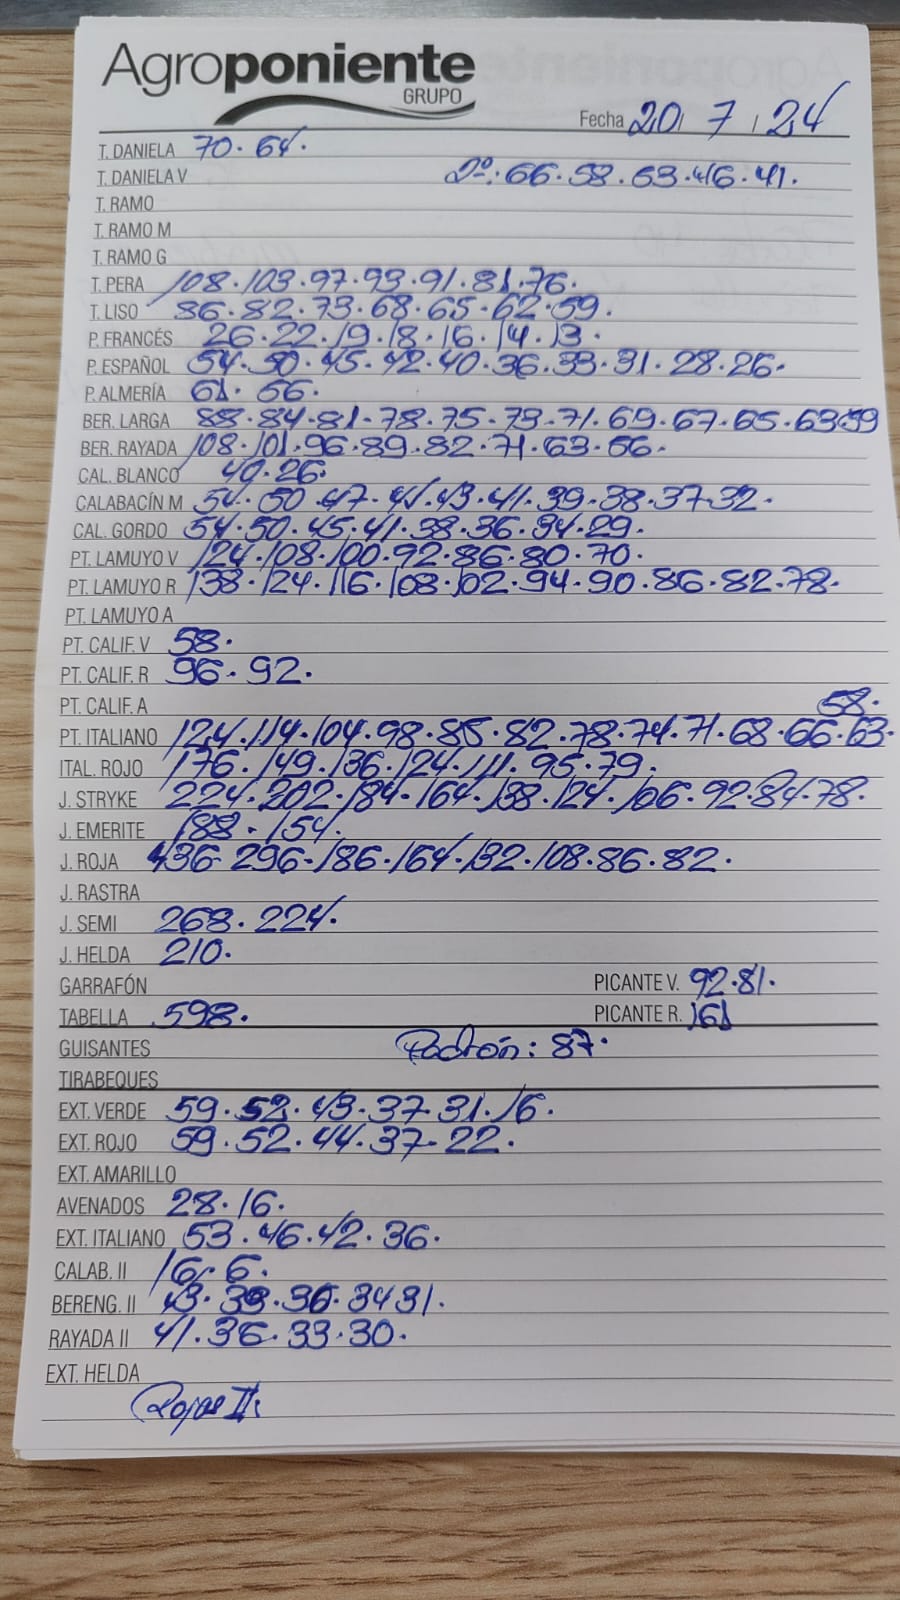 Agroponiente
GRUPO
Fecha 20 / 7 / 24
T. DANIELA 70. 64.
T. DANELA V 2º: 66. 58. 53. 46. 41.
T. RAMO
T. RAMO M
T. RAMO G
T. PERA 108. 103. 97. 93. 91. 81. 76.
T. LISO 86. 82. 73. 68. 65. 62. 59.
P. FRANCÉS 26. 22. 19. 18. 16. 14. 13.
P. ESPAÑOL 54. 50. 45. 42. 40. 36. 33. 31. 28. 26.
P. ALMERÍA 61. 56.
BER. LARGA 88. 84. 81. 78. 75. 73. 71. 69. 67. 65. 63. 59
BER. RAYADA 108. 101. 96. 89. 82. 71. 63. 56.
CAL. BLANCO 40. 26.
CALABACÍN M 54. 50. 47. 45. 43. 41. 39. 38. 37. 32.
CAL. GORDO 54. 50. 45. 41. 38. 36. 34. 29.
PT. LAMUYO V 124. 108. 100. 92. 86. 80. 70.
PT. LAMUYO R 138. 124. 116. 108. 102. 94. 90. 86. 82. 78.
PT. LAMUYO A
PT. CALIF. V 58.
PT. CALIF. R 96. 92.
PT. CALIF. A
58.
PT. ITALIANO 124. 114. 104. 98. 85. 82. 78. 74. 71. 68. 66. 63.
ITAL. ROJO 176. 149. 136. 124. 111. 95. 79.
J. STRYKE 224. 202. 184. 164. 138. 124. 106. 92. 84. 78.
J. EMERITE 188. 154.
J. ROJA 436. 296. 186. 164. 132. 108. 86. 82.
J. RASTRA
J. SEMI 268. 224.
J. HELDA 210.
GARRAFÓN PICANTE V. 92. 81.
TABELLA 598. PICANTE R. 161
GUISANTES Padrón: 87.
TIRABEQUES
EXT. VERDE 59. 52. 43. 37. 31. 16.
EXT. ROJO 59. 52. 44. 37. 22.
EXT. AMARILLO
AVENADOS 28. 16.
EXT. ITALIANO 53. 46. 42. 36.
CALAB. II 16. 6.
BERENG. II 43. 39. 36. 34 31.
RAYADA II 41. 36. 33. 30.
EXT. HELDA
Rojas II: